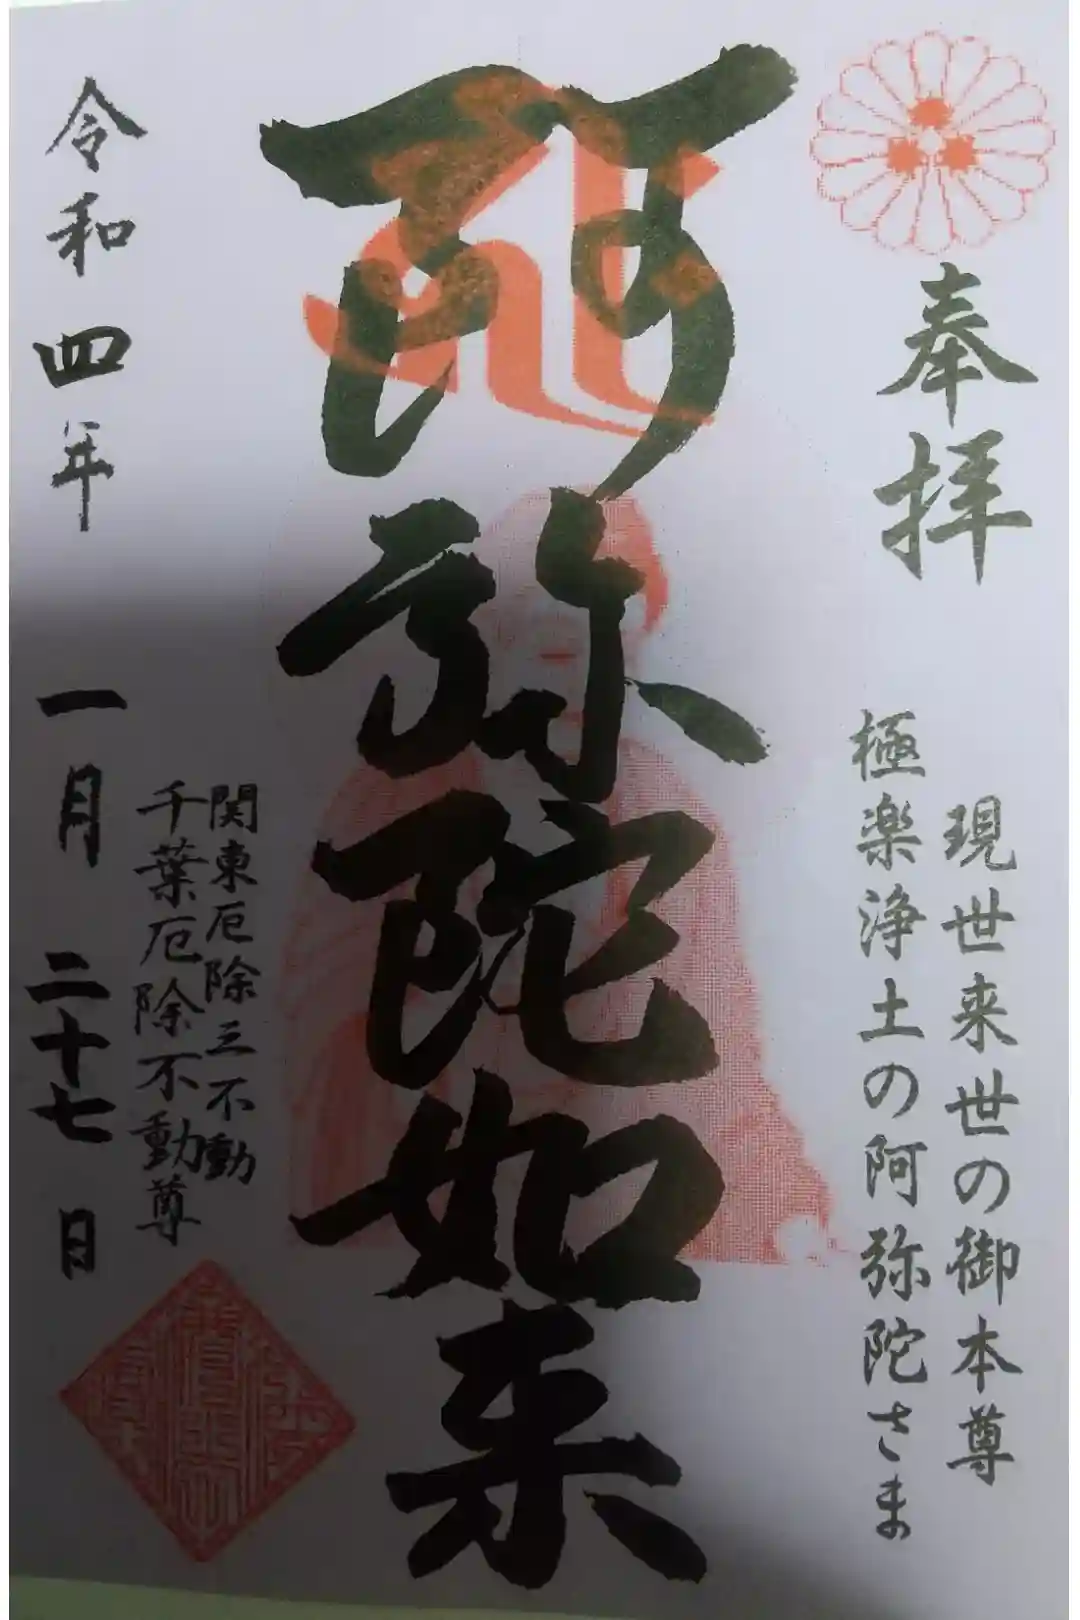 奉拝
現世来世の御本尊
極楽浄土の阿弥陀さま
阿弥陀如来
関東厄除三不動
千葉厄除不動尊
令和四年一月二十七日